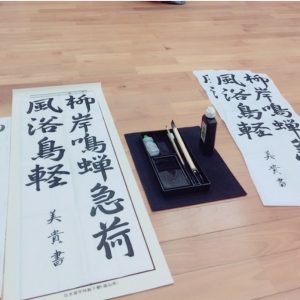 柳岸鳴蝉急荷
風浴鳥軽
美貴書
柳岸鳴蝉
風浴鳥軽
美貴書